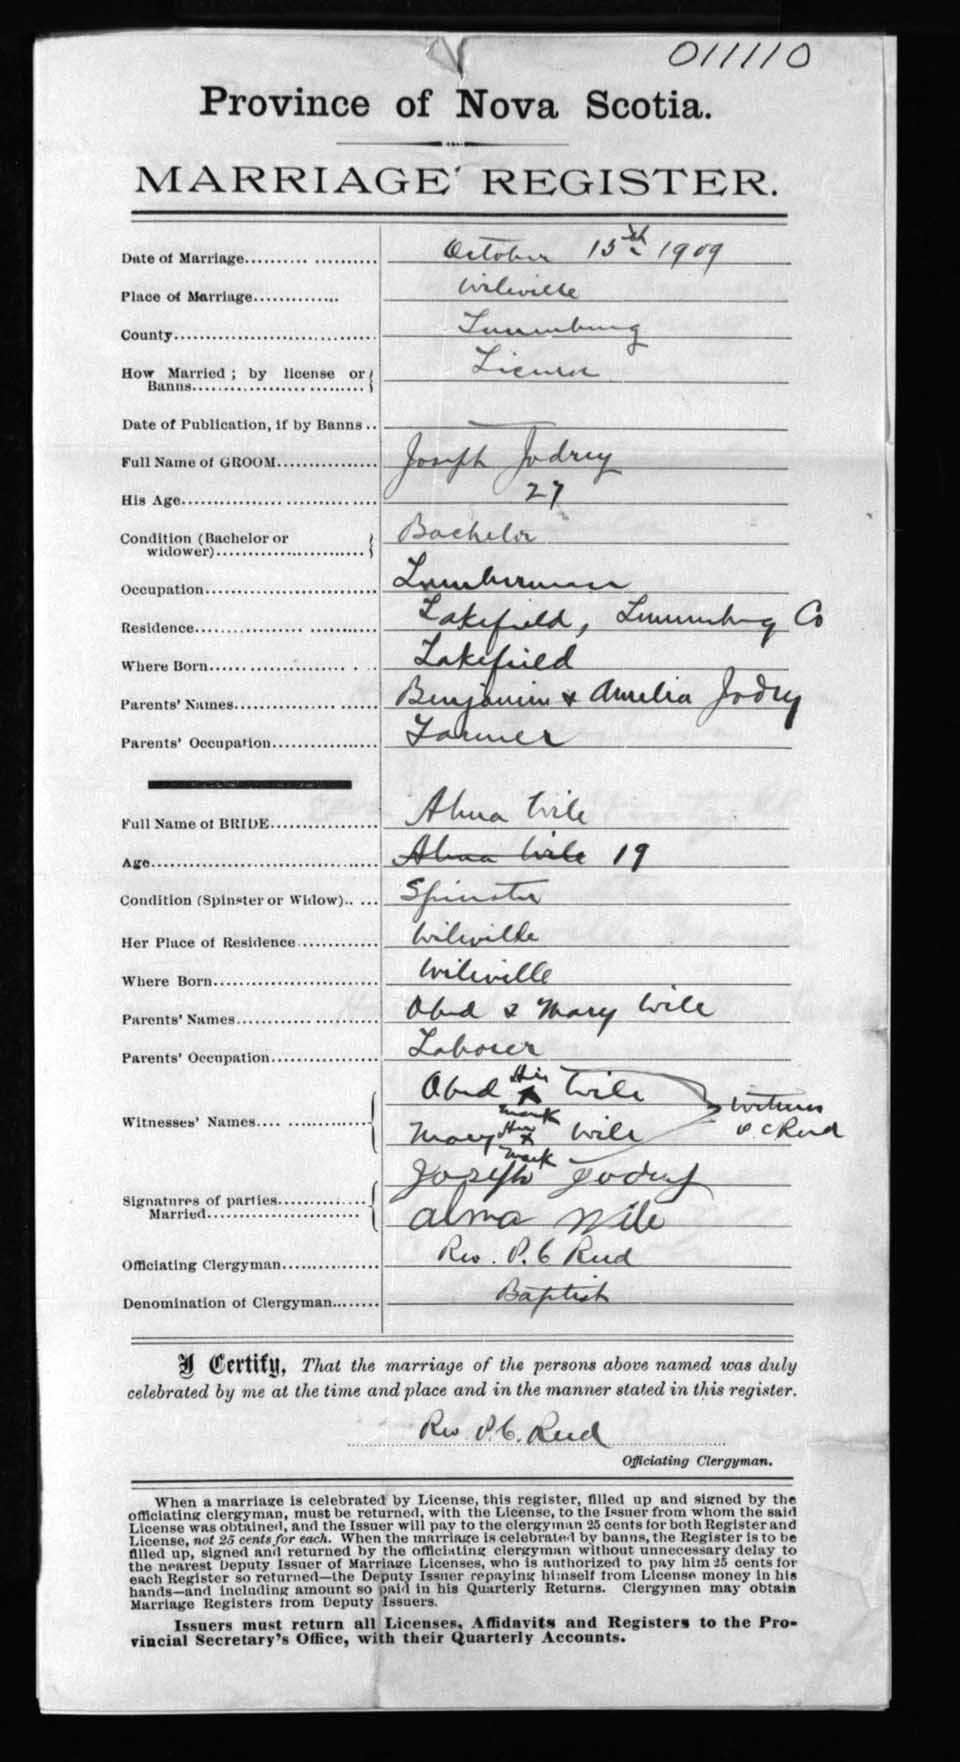 011110
Province of Nova Scotia.
MARRIAGE REGISTER.
Date of Marriage.......... .......... October 15th 1909
Place of Marriage............. Wileville
County............................... Lunenburg
How Married ; by license or License
Banns.................. .........
Date of Publication, if by Banns ..
Full Name of GROOM............... Joseph Jodrey
His Age................ ............. 27
Condition (Bachelor or Bachelor
widower)......................
Occupation.......................... Lumberman
Residence................. .......... Lakefield, Lunenburg Co
Where Born...... ............ . . . Lakefield
Parents' Names................ ...... Benjamin & Amelia Jodry
Parents' Occupation................. Farmer
Full Name of BRIDE................ Alma Wile
Age............................. ..... Alma Wile 19
Condition (Spinster or Widow).. ... Spinster
Her Place of Residence............ Wileville
Where Born......................... Wileville
Parents' Names............. .......... Obed & Mary Wile
Parents' Occupation................. Laborer
Obed His X mark Wile
Witnesses' Names.... ............. Witness
Mary Her X mark Wile P. C Reid
Joseph Jodrey
Signatures of parties..............
Married....................... Alma Wile
Officiating Clergyman............... Rev. P. C Reid
Denomination of Clergyman........ Baptist
I Certify, That the marriage of the persons above named was duly
celebrated by me at the time and place and in the manner stated in this register.
Rev P. C. Reid
Officiating Clergyman.
When a marriage is celebrated by License, this register, filled up and signed by the
officiating clergyman, must be returned, with the License, to the Issuer from whom the said
License was obtained, and the Issuer will pay to the clergyman 25 cents for both Register and
License, not 25 cents for each. When the marriage is celebrated by banns, the Register is to be
filled up, signed and returned by the officiating clergyman without unnecessary delay to
the nearest Deputy Issuer of Marriage Licenses, who is authorized to pay him 25 cents for
each Register so returned—the Deputy Issuer repaying himself from License money in his
hands—and including amount so paid in his Quarterly Returns. Clergymen may obtain
Marriage Registers from Deputy Issuers.
Issuers must return all Licenses, Affidavits and Registers to the Pro-
vincial Secretary's Office, with their Quarterly Accounts.